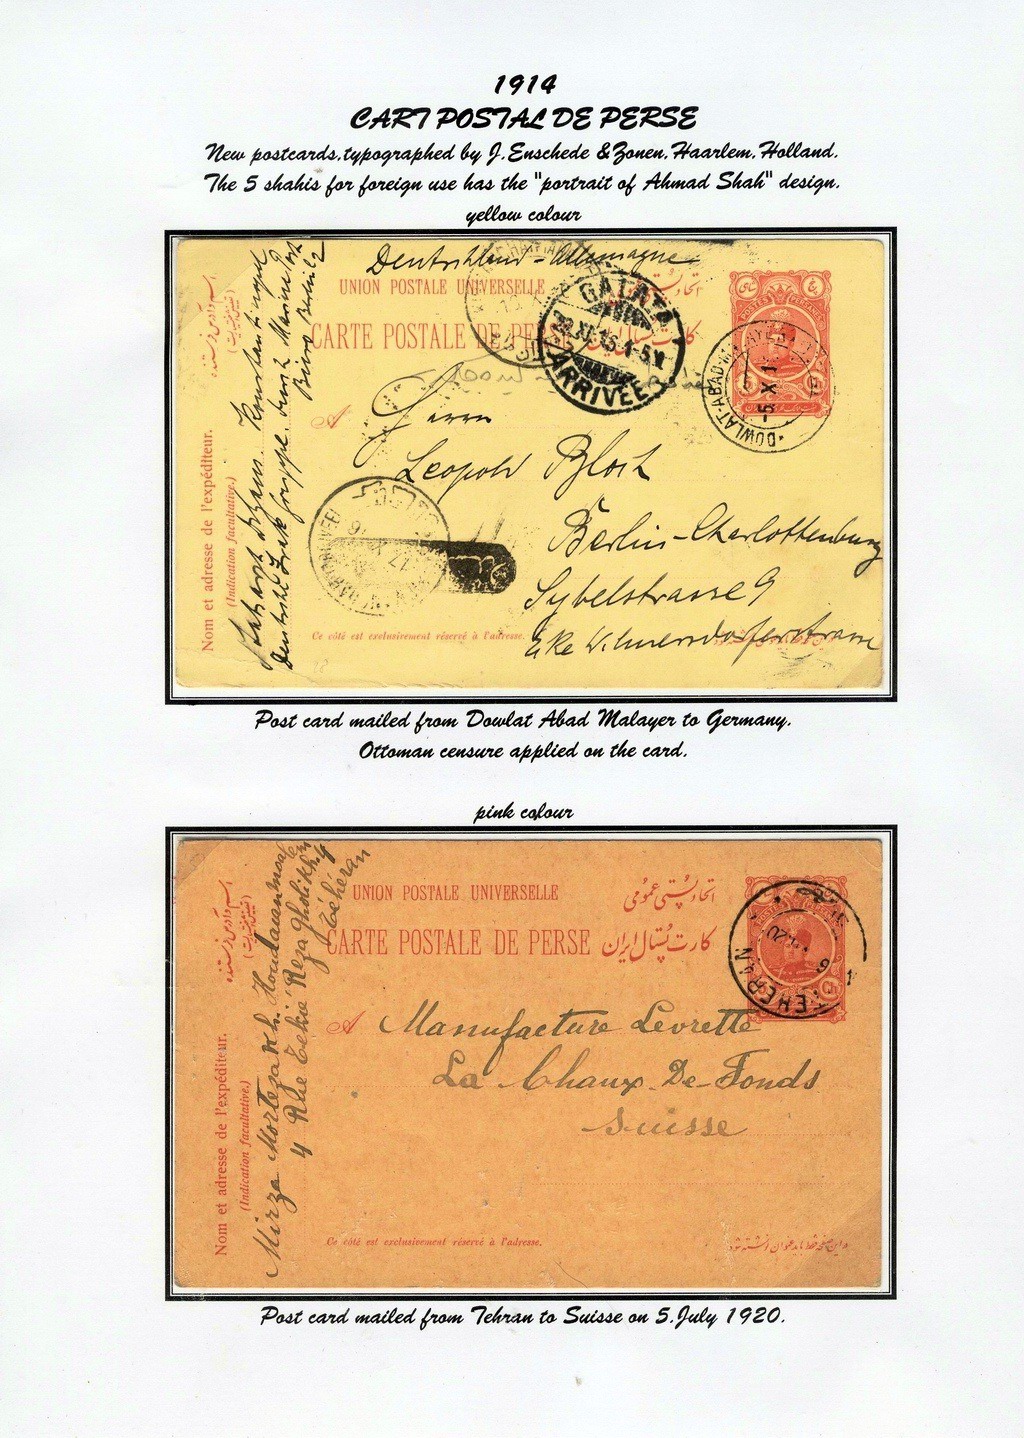 1914
CART POSTAL DE PERSE
New postcards, typographed by J. Enschede & Zonen, Haarlem, Holland.
The 5 shahis for foreign use has the "portrait of Ahmad Shah" design.
yellow colour
Deutschland - Allemagne
UNION POSTALE UNIVERSELLE
CARTE POSTALE DE PERSE
GALATA
ARRIVÉE
DOWLAT-ABAD-MALAYER
-5 X 1
A
Herrn
Leopold Bloch
Berlin-Charlottenburg
Sybelstrasse 9
Eke Wilmersdorferstrasse
Nom et adresse de l'expéditeur.
(Indication facultative.)
Konstantinopel
Ce côté est exclusivement réservé à l'adresse.
Post card mailed from Dowlat Abad Malayer to Germany.
Ottoman censure applied on the card.
pink colour
UNION POSTALE UNIVERSELLE
اتحاد پستی عمومی
CARTE POSTALE DE PERSE
کارت پستال ایران
TEHERAN
A
Manufacture Levrette
La Chaux-De-Fonds
Suisse
Nom et adresse de l'expéditeur.
(Indication facultative.)
Mirza Mortezakh
4 Rue
Téhéran
Ce côté est exclusivement réservé à l'adresse.
Post card mailed from Tehran to Suisse on 5.July 1920.